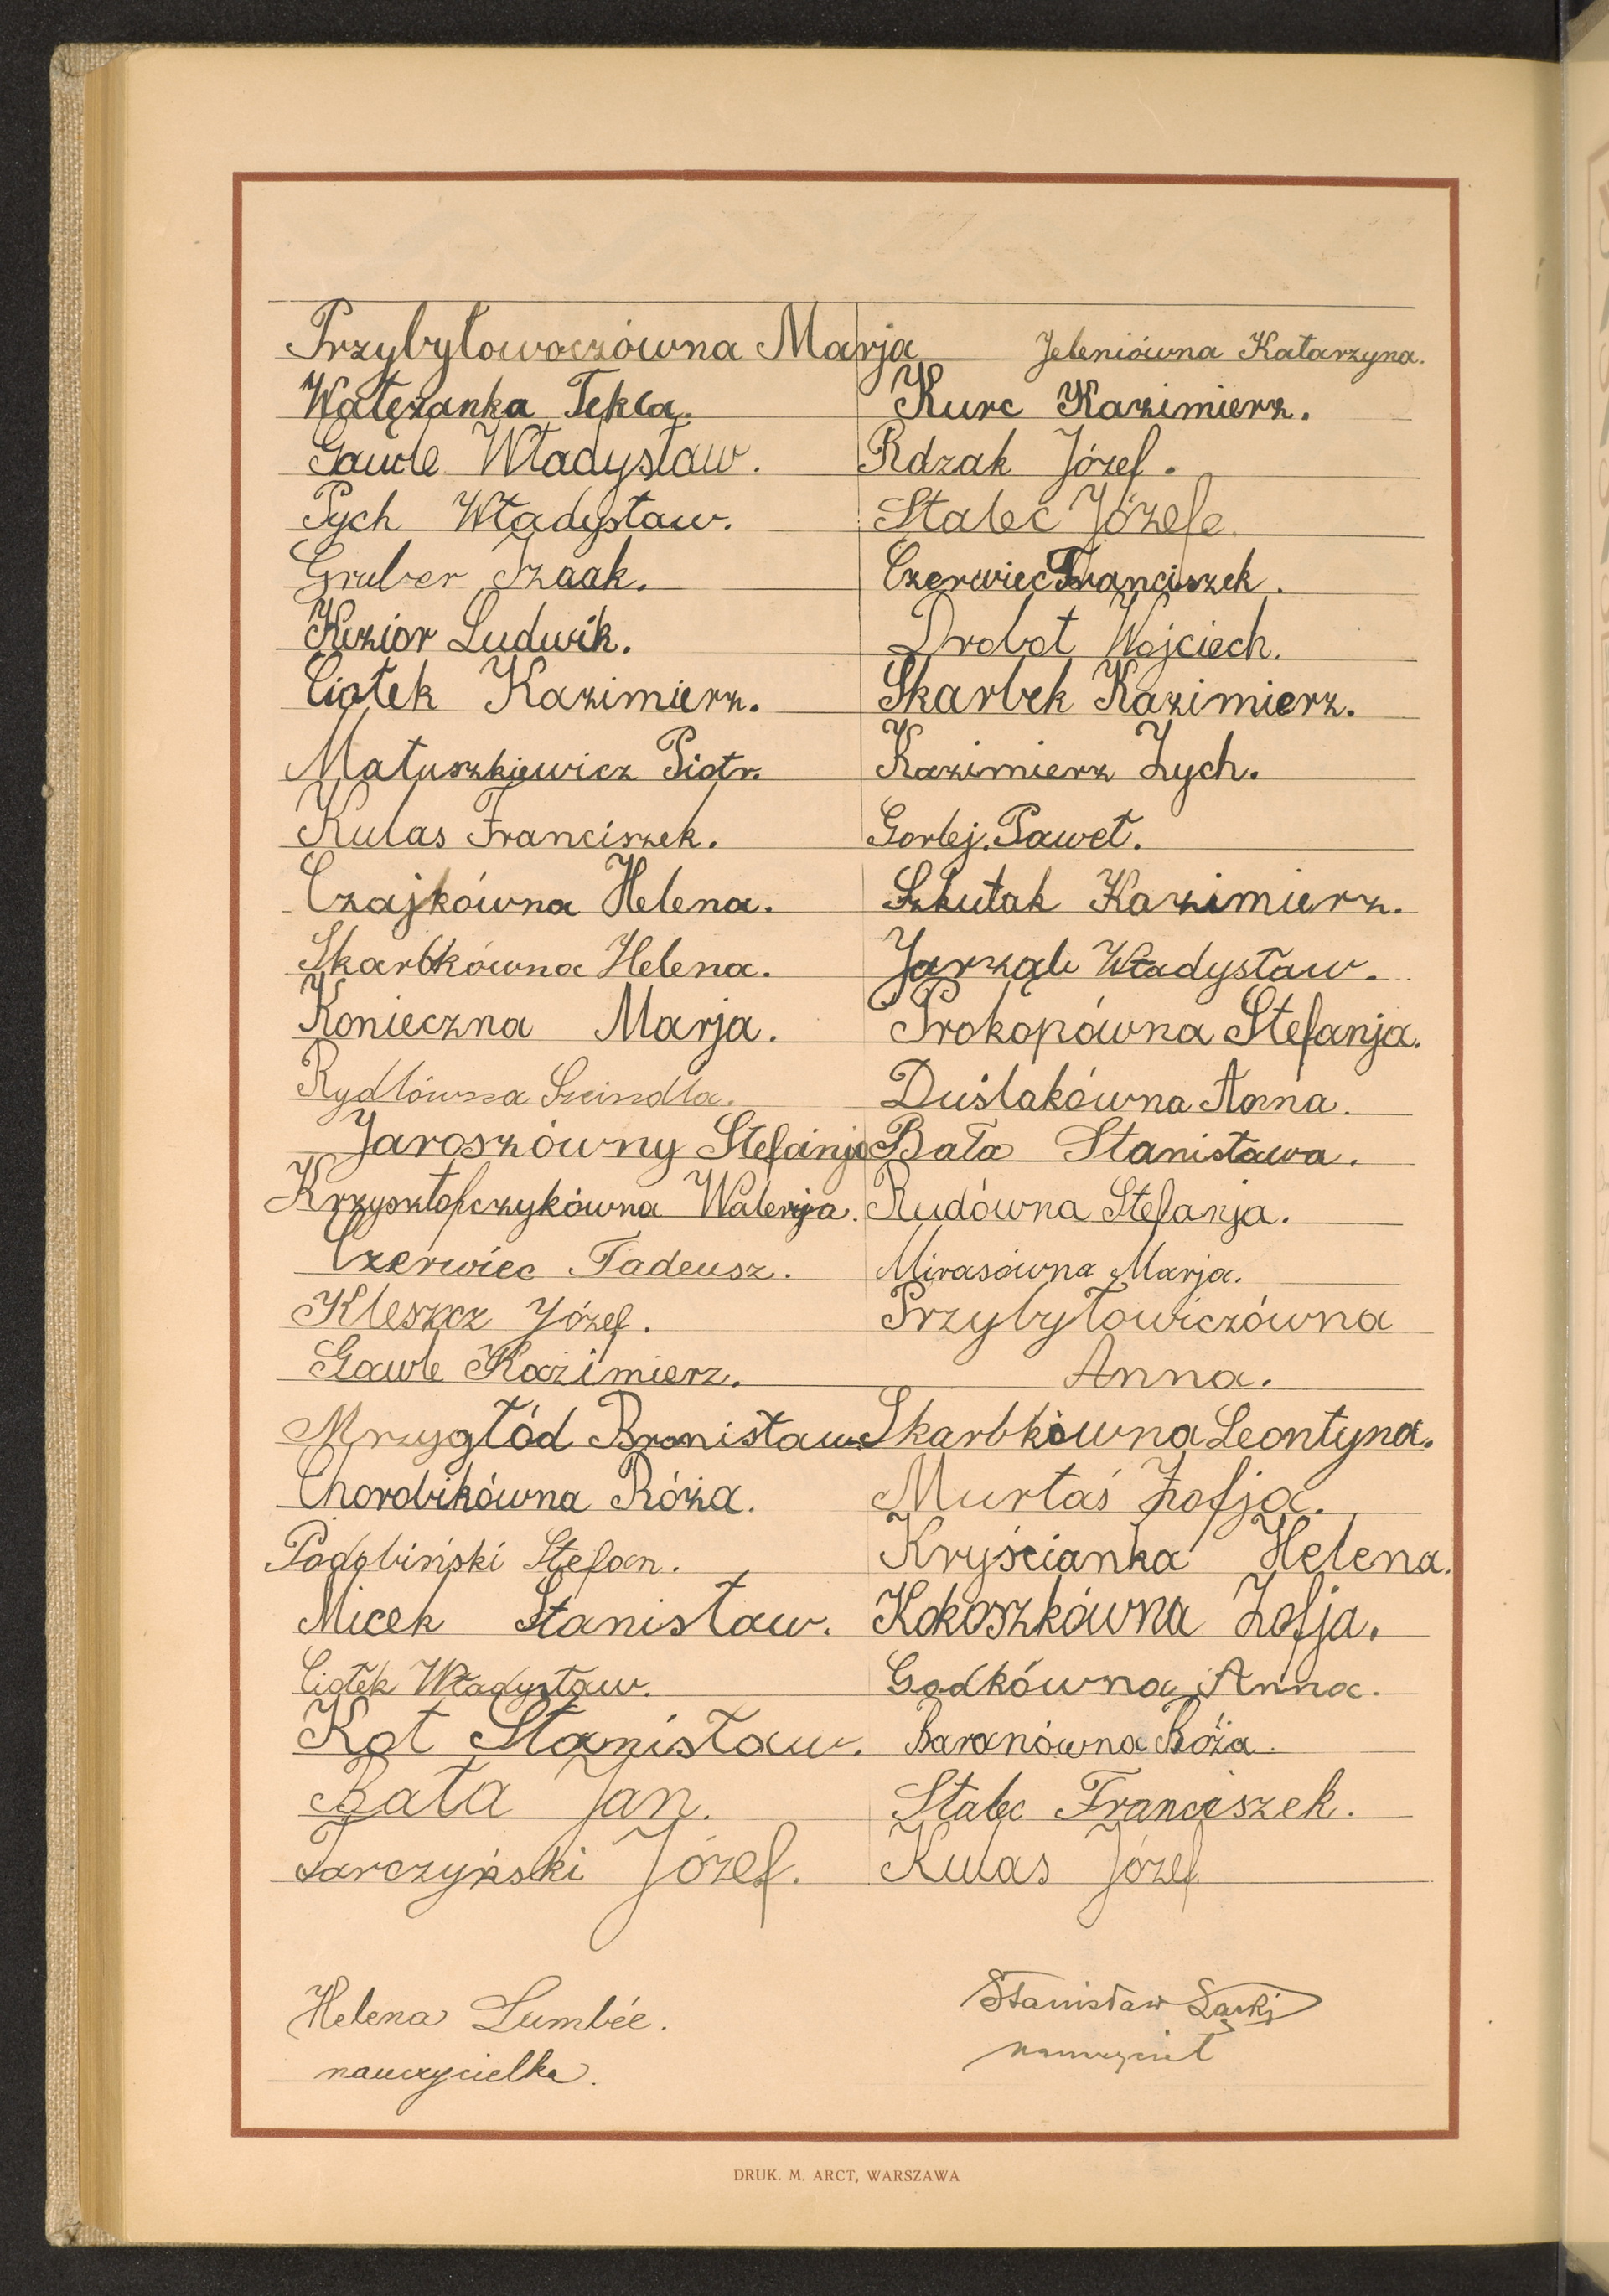 Przybyłowoczówna Marja
Wałęzanka Tekla.
Gawle Władysław.
Pych Władysław.
Gruber Izaak.
Kizior Ludwik.
Ciołek Kazimierz.
Matuszkiewicz Piotr.
Kulas Franciszek.
Czajkówna Helena.
Skarbkówna Helena.
Konieczna Marja.
Rydlówna Szeindla.
Jaroszówny Stefanja
Krzysztofczykówna Walerja.
Czerwiec Tadeusz.
Kleszcz Józef.
Gawle Kazimierz.
Mrzygłód Bronisław.
Chorobikówna Róża.
Podobiński Stefan.
Micek Stanisław.
Ciołek Władysław.
Kot Stanisław.
Bała Jan.
Tarczyński Józef.
Helena Lumbée.
nauczycielka.
Jeleniówna Katarzyna.
Kurc Kazimierz.
Rdzak Józef.
Stalec Józefe
Czerwiec Franciszek.
Drobot Wojciech.
Skarbek Kazimierz.
Kazimierz Zych.
Gorlej. Paweł.
Szkutak Kazimierz.
Jarząb Władysław.
Prokopówna Stefanja.
Duślakówna Anna.
Bała Stanisława.
Rudówna Stefanja.
Mirasówna Marja.
Przybyłowiczówna
Anna.
Skarbkówna Leontyna.
Murłaś Zofja.
Kryścianka Helena.
Kokoszkówna Zofja.
Godkówna Anna.
Baranówna Róża.
Stalec Franciszek.
Kulas Józef
Stanisław
nauczyciel
DRUK. M. ARCT, WARSZAWA